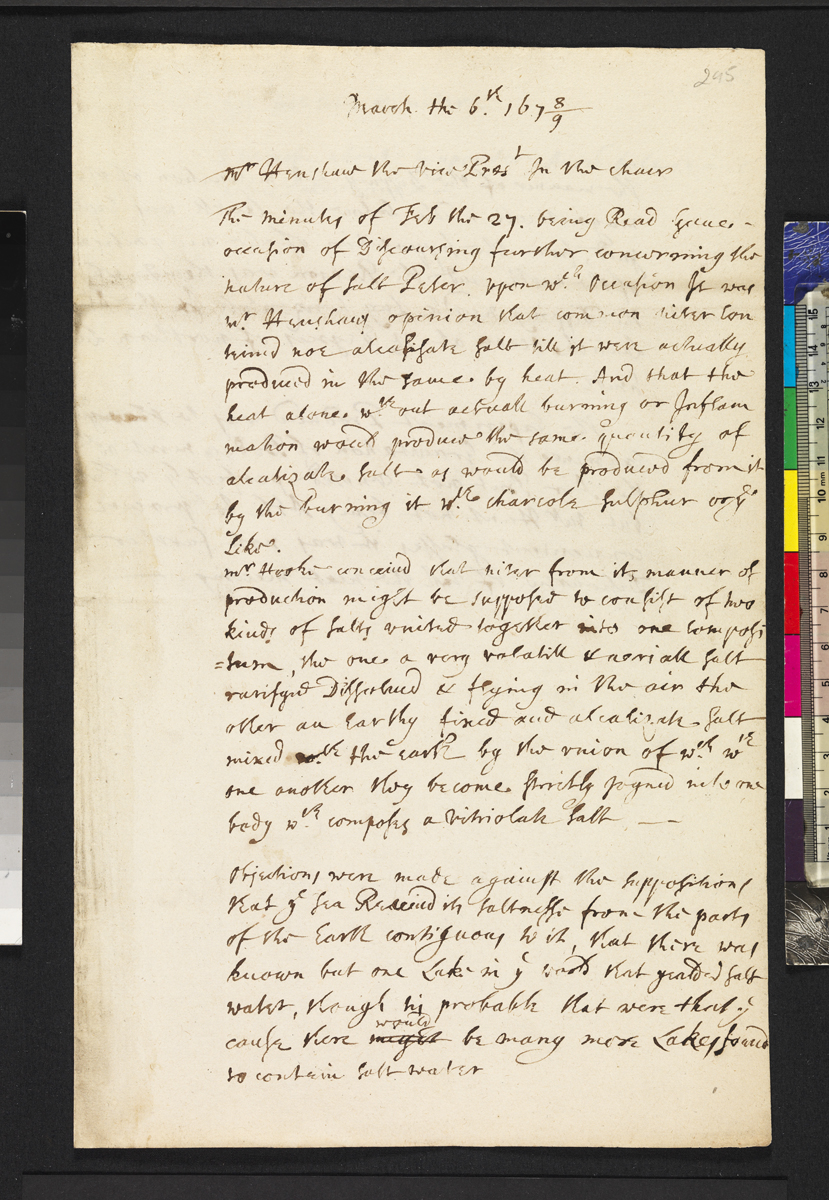 245
March the 6.th 167 8/9
Mr Henshaw the vice Prest In the chair
The minutes of Feb the 27. being Read gave -
occasion of Discoursing further concerning the
nature of Salt Peter. vpon wch Occasion It was
mr Henshaws opinion that common niter con
teind noe alcalizate salt till it were actually
produced in the same by heat. And that the
heat alone wthout actuall burning or Inflam
mation would produce the same quantity of
alcalizate Salt as would be produced from it
by the burning it wth charcole Sulphur or ye
Like.
mr Hooke conceiud that niter from its manner of
production might be supposed to consist of two
kinds of salts vnited together into one composi
=tum, the one a very volatill & aeriall salt
rarifyd Dissolued & flying in the air the
other an Earthy fixed and alcalizate salt
mixed wth the earth by the vnion of wch wth
one another they become strictly joyned into one
body wch composes a vitriolate salt
objections were made against the suppositions
that ye sea Receiud its saltnesse from the parts
of the Earth contiguous to it, that there was
known but one Lake in ye world that yealded salt
water, though tis probable that were that ye
cause there would be many more Lakes found
to contein salt water